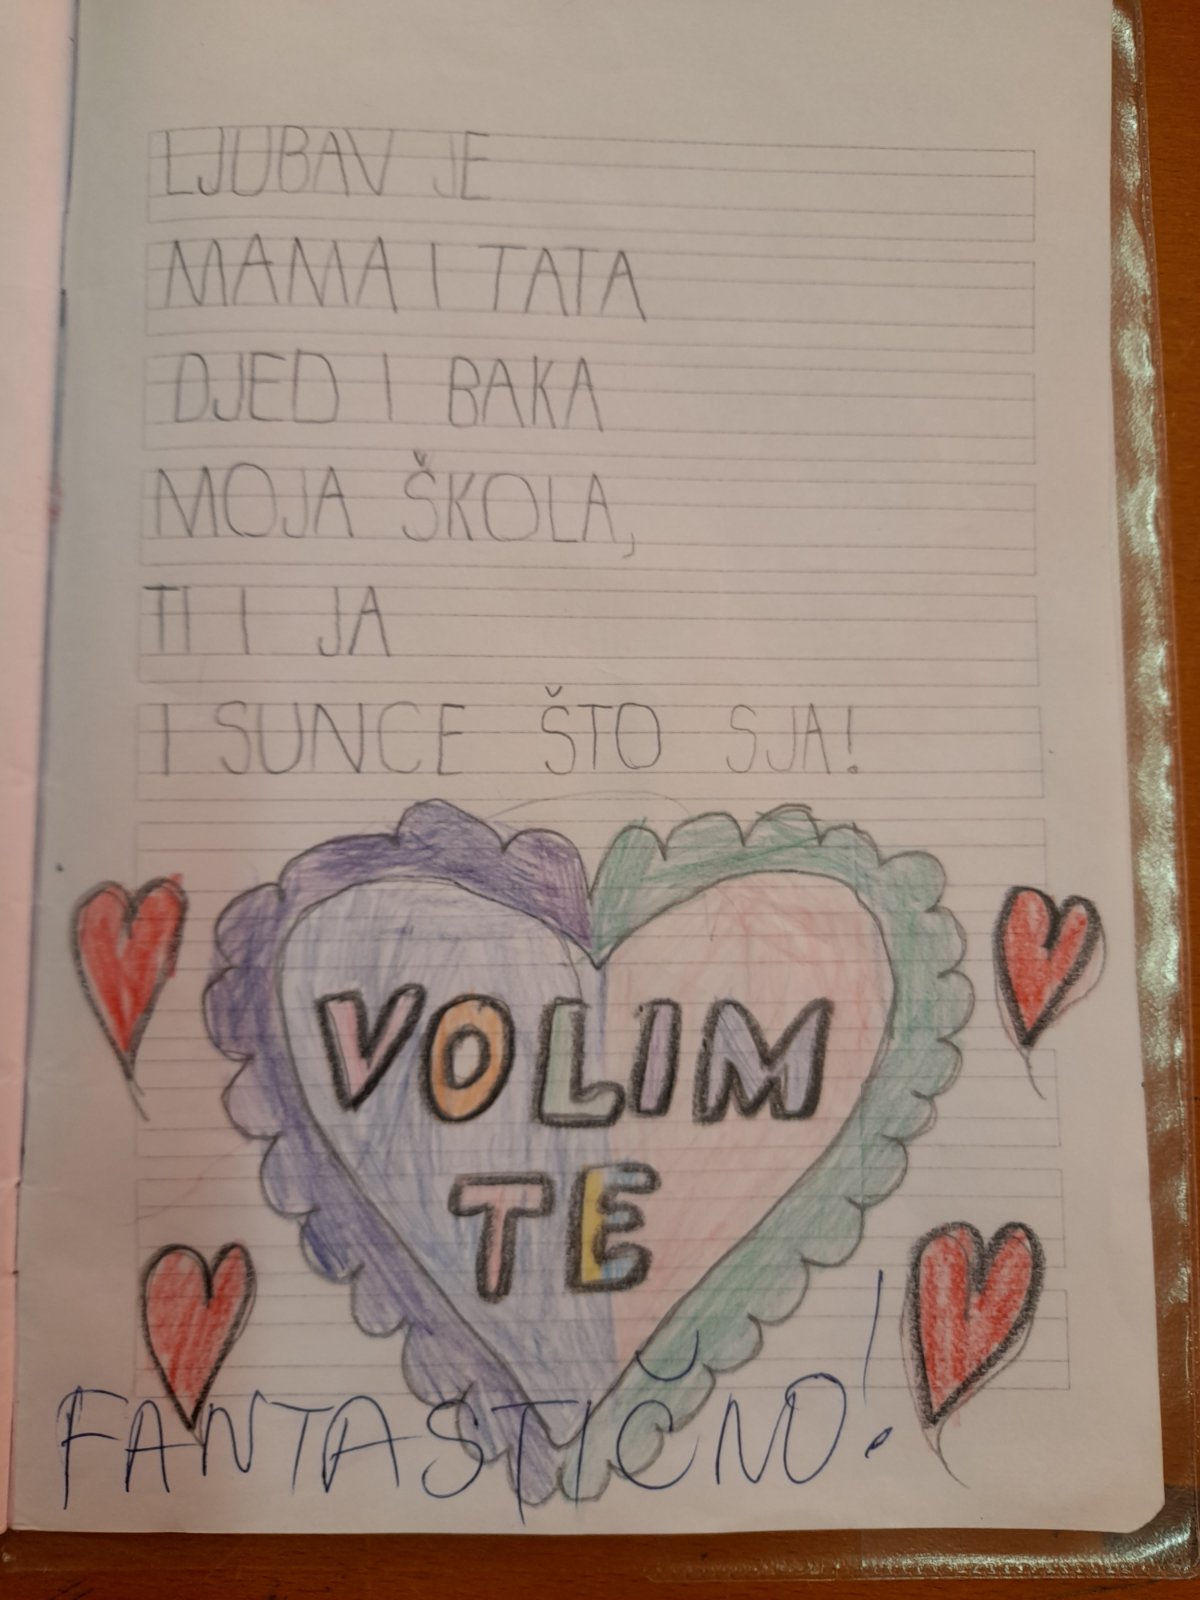 LJUBAV JE
MAMA I TATA
DJED I BAKA
MOJA ŠKOLA,
TI I JA
I SUNCE ŠTO SJA!
VOLIM
TE
FANTASTIČNO!